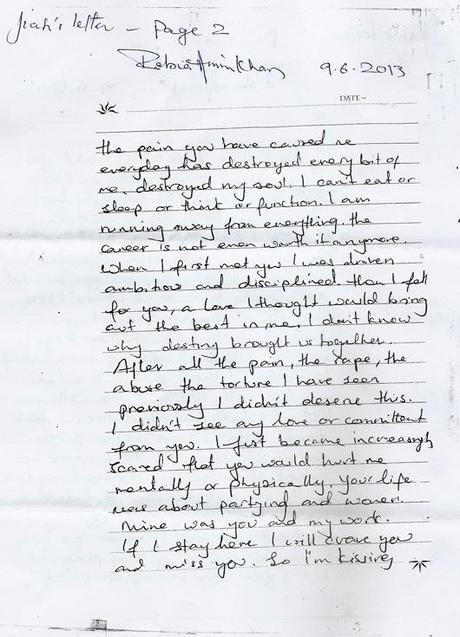 Jiah's letter - Page 2
Rabia Amin Khan 9.6.2013
DATE~
the pain you have caused me
everyday has destroyed every bit of
me, destroyed my soul. I can't eat or
sleep or think or function. I am
running away from everything. the
career is not even worth it anymore.
When I first met you I was driven
ambitious and disciplined. then I fell
for you, a love I thought would bring
out the best in me. I don't know
why destiny brought us together.
After all the pain, the rape, the
abuse the torture I have seen
previously I didn't deserve this.
I didn't see any love or committment
from you. I just became increasingly
scared that you would hurt me
mentally or physically. Your life
was about partying and women.
Mine was you and my work.
If I stay here I will crave you
and miss you. So I'm kissing